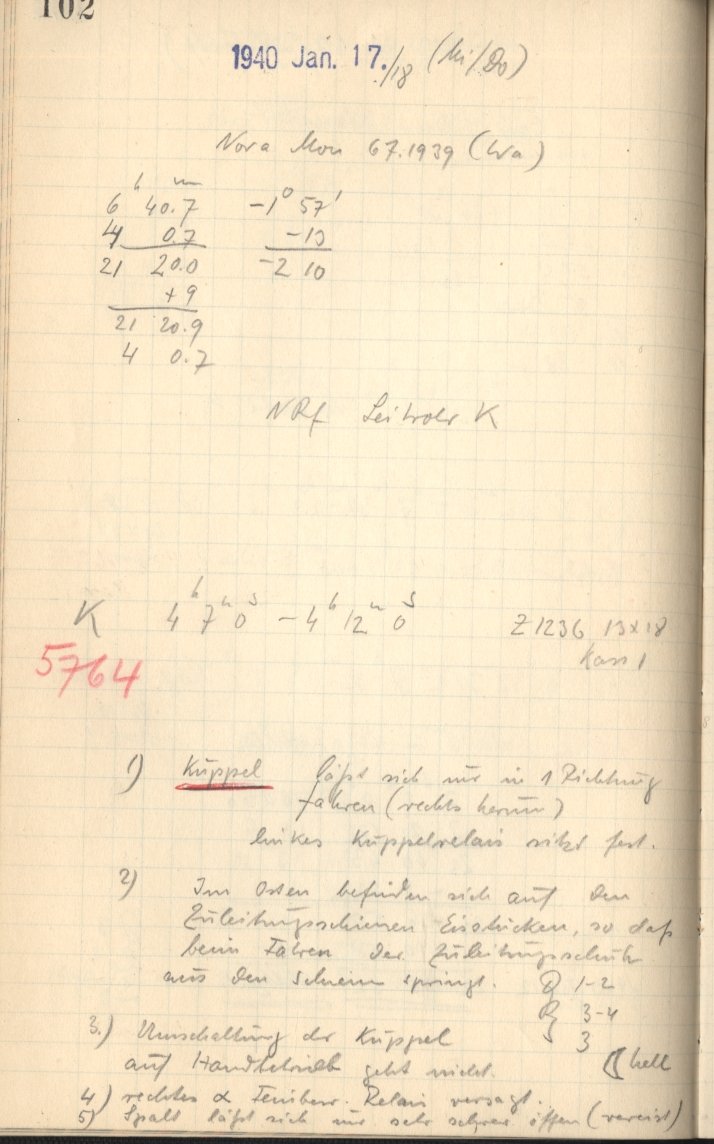 102
1940 Jan. 17./18 (Mi/Do)
Nova Mon 67.1939 (Wa)
6 h 40.7 m -1° 57'
4 0.7 -13
21 20.0 -2 10
+9
21 20.9
4 0.7
NRf Leitrohr K
K 4h 7m 0s - 4h 12m 0s Z 1236 13x18
5764 Kass 1
1) Kuppel läßt sich nur in 1 Richtung
fahren (rechts herum)
linkes Kuppelrelais sitzt fest.
2) Im Osten befinden sich auf den
Zuleitungsschienen Eisstücken, so daß
beim Fahren der Zuleitungsschuh
aus den Schienen springt. Q 1-2
R 3-4
3.) Umschaltung der Kuppel 3
auf Handbetrieb geht nicht. hell
4) rechtes α Feinbew. Relais versagt.
5) Spalt läßt sich nur sehr schwer öffnen (vereist)